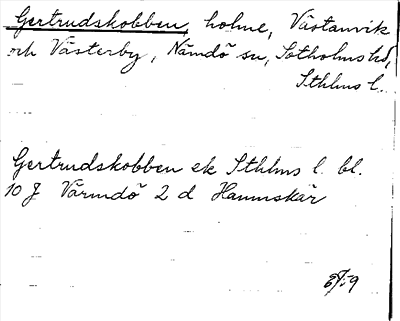 Gertrudskobben, holme, Västanvik
och Västerby, Nämdö sn, Sotholms hd,
Sthlms l.
Gertrudskobben ek Sthlms l. bl.
10 J Värmdö 2 d Hamnskär